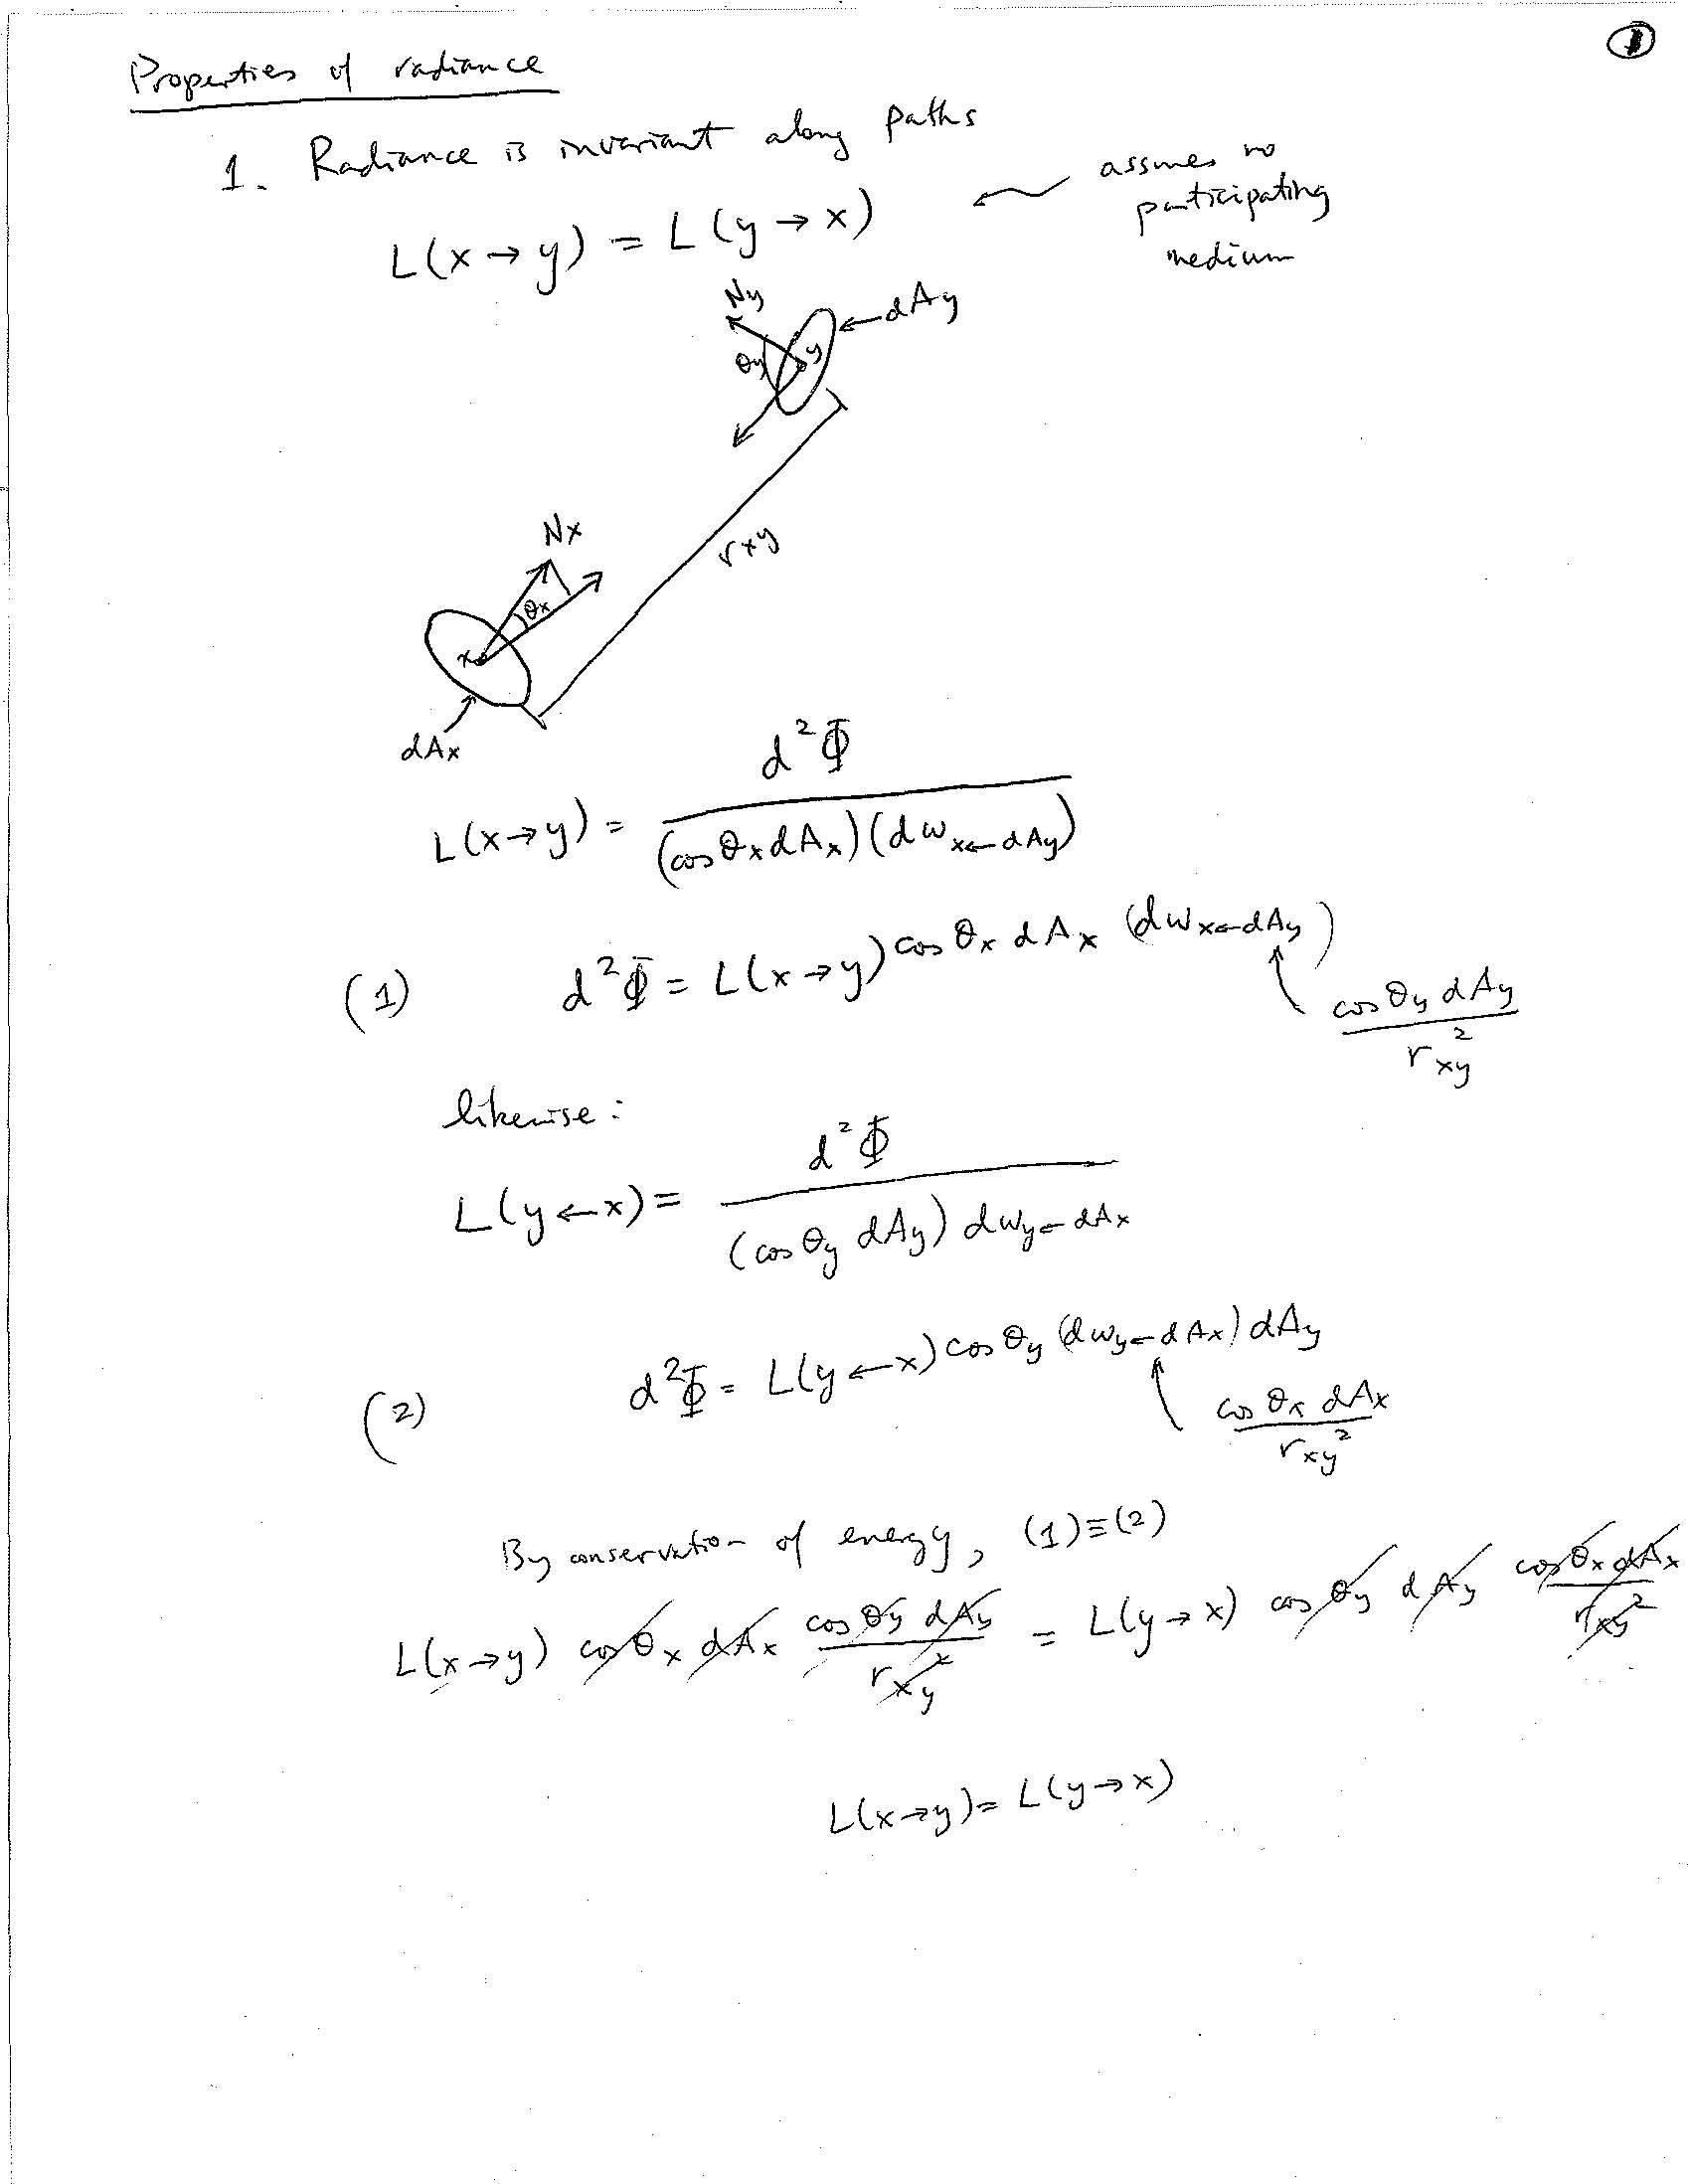 ①
Properties of radiance
1. Radiance is invariant along paths
L(x → y) = L(y → x)
assumes no
participating
medium
Ny
dAy
θy
y
rxy
Nx
θx
x
dAx
L(x→y) = d²Φ / (cos θx dAx)(dωx←dAy)
(1) d²Φ = L(x→y) cos θx dAx (dωx←dAy)
cos θy dAy / rxy²
likewise:
L(y←x) = d²Φ / (cos θy dAy) dωy←dAx
(2) d²Φ = L(y←x) cos θy (dωy←dAx) dAy
cos θx dAx / rxy²
By conservation of energy, (1)≡(2)
L(x→y) cos θx dAx cos θy dAy / rxy² = L(y→x) cos θy dAy cos θx dAx / rxy²
L(x→y) = L(y→x)